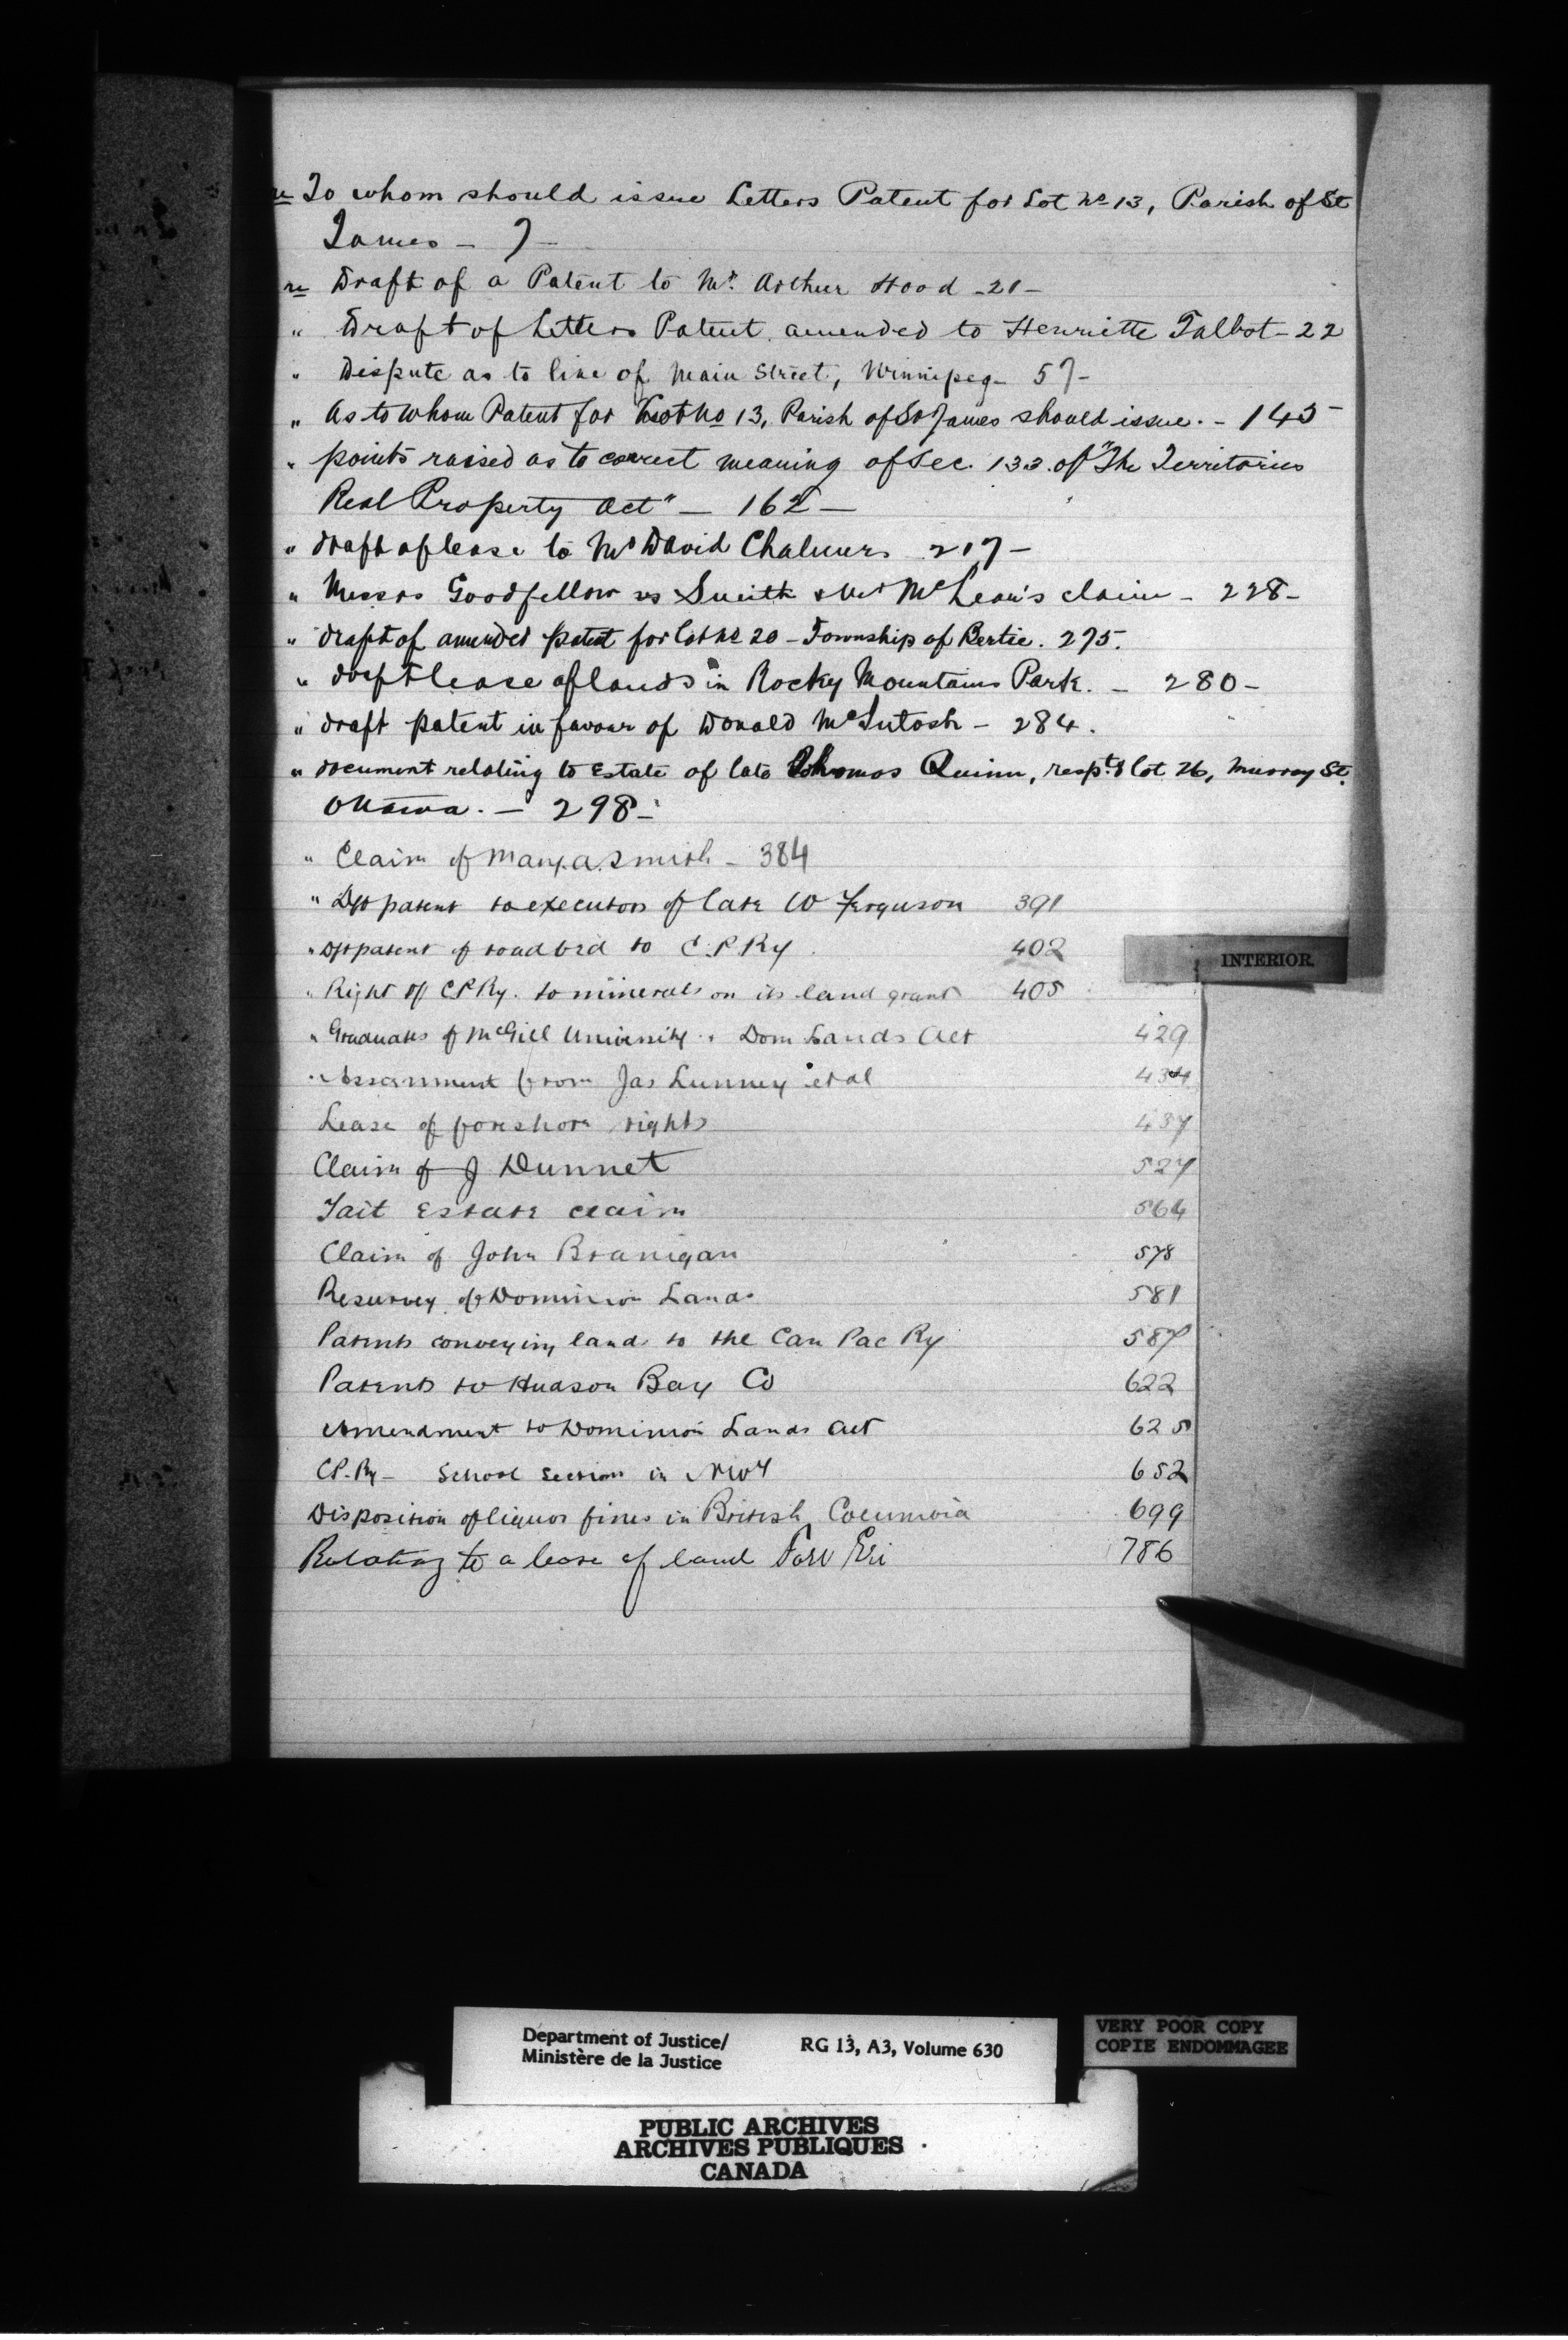 re To whom should issue Letters Patent for Lot No 13, Parish of St
James - 7 -
re Draft of a Patent to Mr. Arthur Hood - 21 -
" Draft of Letters Patent amended to Henriette Talbot - 22
" Dispute as to line of Main Street, Winnipeg - 57 -
" As to whom Patent for Lot No 13, Parish of St James should issue. - 145 -
" points raised as to correct meaning of Sec. 133. of "The Territories
Real Property Act" - 162 -
" draft of lease to Mr David Chalmers 217 -
" Messrs Goodfellow vs Smith & Mr McLean's claim - 228 -
" draft of amended patent for lot No 20 - Township of Bertie. 275.
" draft lease of lands in Rocky Mountains Park. - 280 -
" draft patent in favour of Donald McIntosh - 284.
" document relating to Estate of late Thomas Quinn, resptg lot 26, Murray St.
Ottawa. - 298 -
" Claim of Mary A. Smith - 384
" Dft patent to executors of late W Ferguson 391
" Dft patent of roadbed to C.P.Ry. 402
" Right of CPRy. to minerals on its land grant 405
" Graduates of McGill University " Dom Lands Act 429
" Assignment from Jas Lunney et al 434
Lease of foreshore rights 437
Claim of J Dunnet 527
Tait Estate claim 564
Claim of John Branigan 578
Resurvey of Dominion Lands 581
Patents conveying lands to the Can Pac Ry 587
Patents to Hudson Bay Co 622
Amendment to Dominion Lands Act 625
CP.Ry - School Sections in NWT 652
Disposition of liquor fines in British Columbia 699
Relating to a lease of land Fort Erie 786
INTERIOR.
Department of Justice/ RG 13, A3, Volume 630
Ministère de la Justice
VERY POOR COPY
COPIE ENDOMMAGEE
PUBLIC ARCHIVES
ARCHIVES PUBLIQUES
CANADA